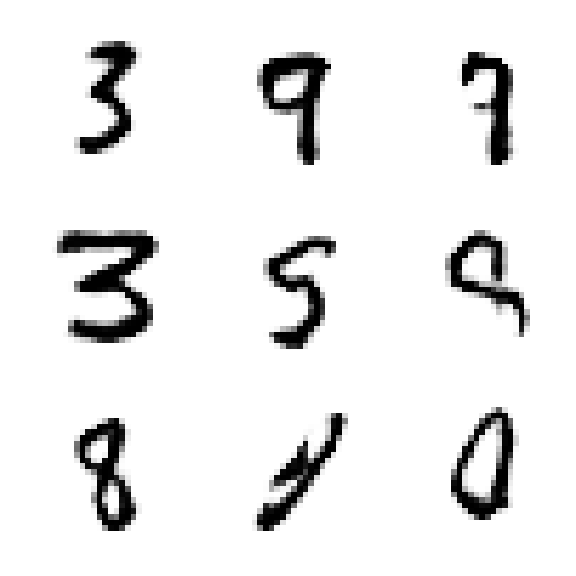 3 9 7
3 5
8 0